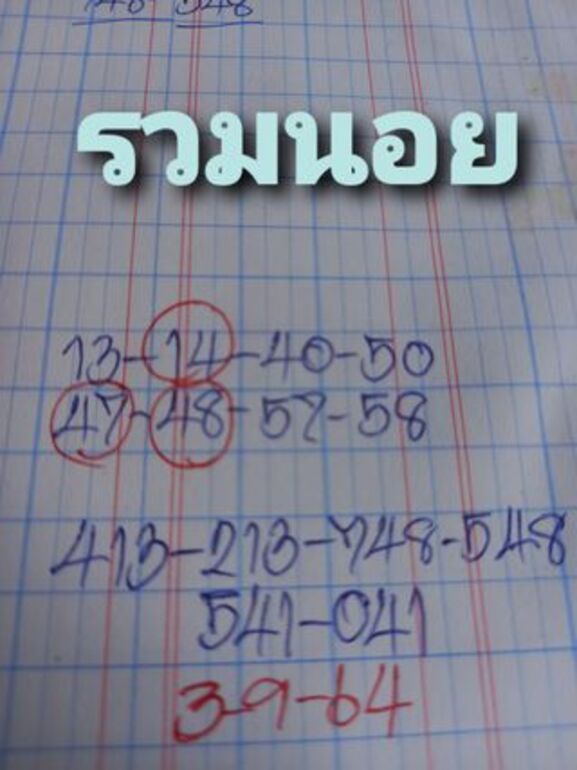 748-548
รวมนอย
13-14-40-50
47-48-57-58
413-213-748-548
541-041
3-9-64